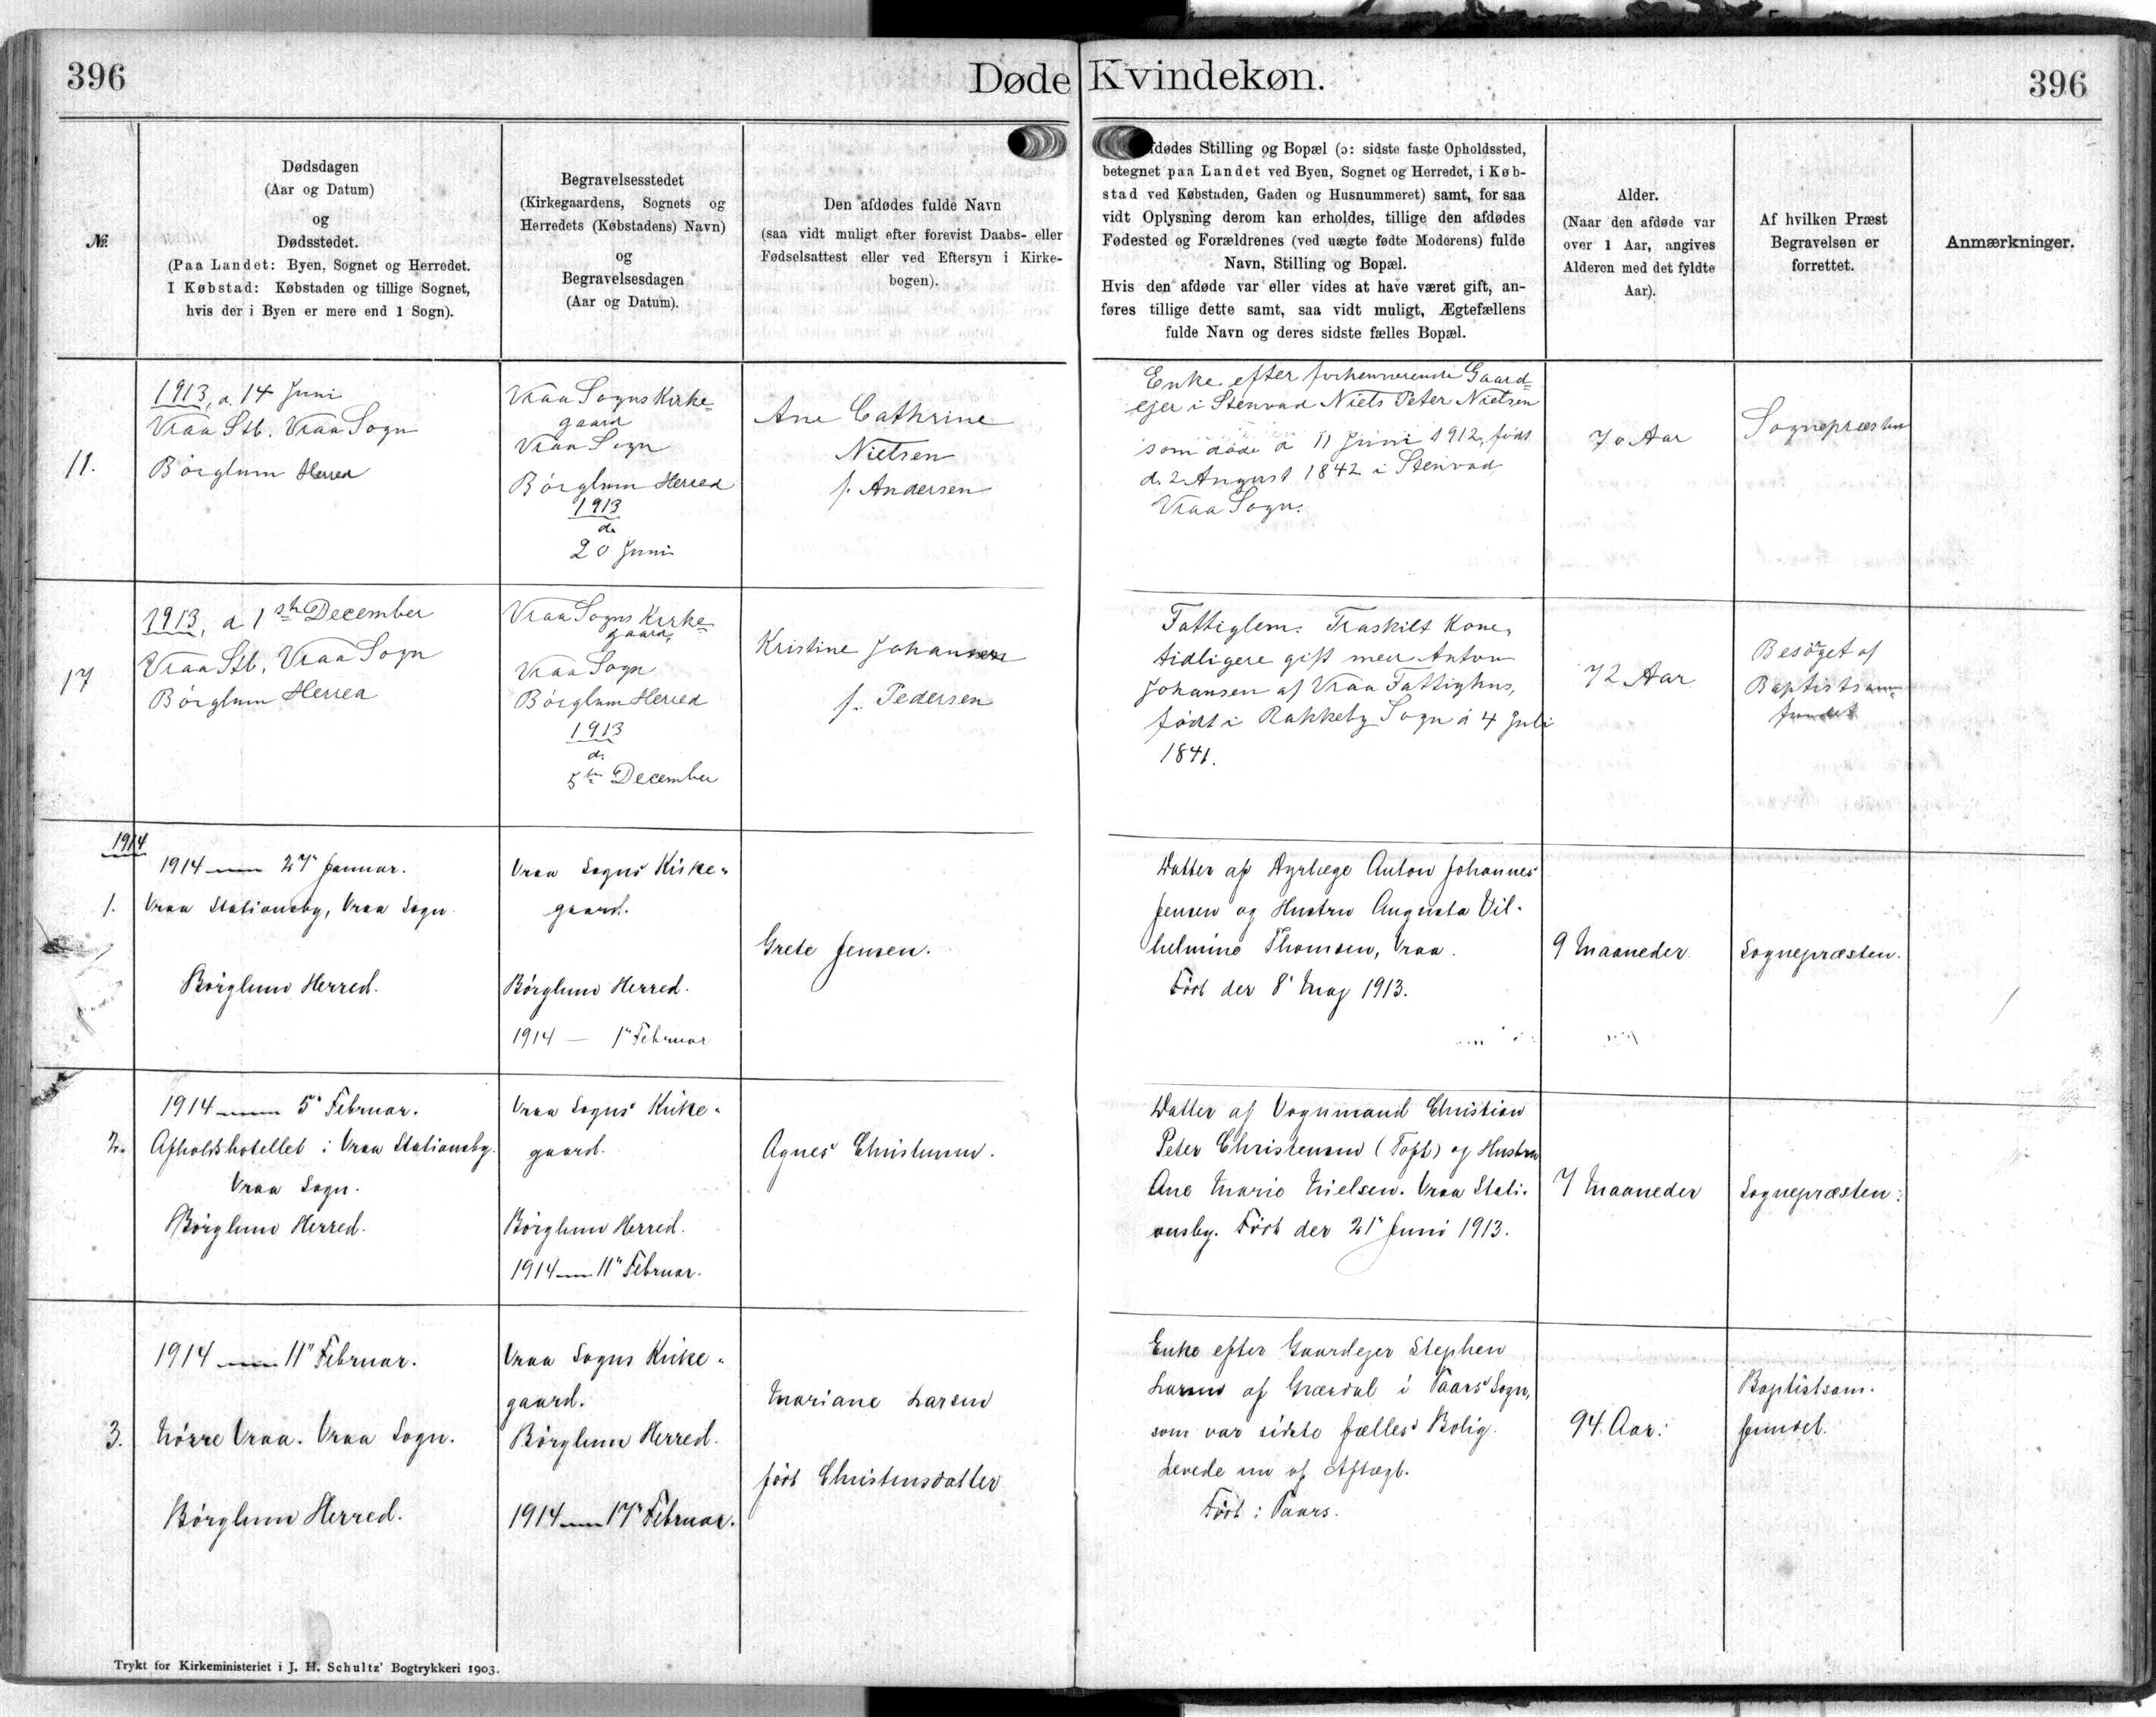 396
Døde Kvindekøn.
396
№
Dødsdagen
(Aar og Datum)
og
Dødsstedet.
(Paa Landet: Byen, Sognet og Herredet.
I Købstad: Købstaden og tillige Sognet,
hvis der i Byen er mere end 1 Sogn).
Begravelsesstedet
(Kirkegaardens, Sognets og
Herredets (Købstadens) Navn)
og
Begravelsesdagen
(Aar og Datum).
Den afdødes fulde Navn
(saa vidt muligt efter forevist Daabs- eller
Fødselsattest eller ved Eftersyn i Kirke-
bogen).
fdødes Stilling og Bopæl (ɔ: sidste faste Opholdssted,
betegnet paa Landet ved Byen, Sognet og Herredet, i Køb-
stad ved Købstaden, Gaden og Husnummeret) samt, for saa
vidt Oplysning derom kan erholdes, tillige den afdødes
Fødested og Forældrenes (ved uægte fødte Moderens) fulde
Navn, Stilling og Bopæl.
Hvis den afdøde var eller vides at have været gift, an-
føres tillige dette samt, saa vidt muligt, Ægtefællens
fulde Navn og deres sidste fælles Bopæl.
Alder.
(Naar den afdøde var
over 1 Aar, angives
Alderen med det fyldte
Aar).
Af hvilken Præst
Begravelsen er
forrettet.
Anmærkninger.
11.
1913, d. 14 Juni
Vraa Stb. Vraa Sogn
Börglum Herred
Vraa Sogns Kirke-
gaard
Vraa Sogn
Börglum Herred
1913
d.
20 Juni
Ane Cathrine
Nielsen
f. Andersen
Enke efter forhenværende Gaard-
ejer i Stenvad Niels Peter Nielsen
som döde d 11 Juni 1912, født
d. 2 August 1842 i Stenvad
Vraa Sogn.
70 Aar
Sognepræsten
17
1913, d 1ste December
Vraa Stb, Vraa Sogn
Börglum Herred
Vraa Sogns Kirke-
gaard,
Vraa Sogn
Börglum Herred
1913
d.
5te December
Kristine Johansen
f. Pedersen
Fattiglem. Fraskilt Kone,
tidligere gift med Anton
Johansen af Vraa Fattighus,
født i Rakkeby Sogn d 4 Juli
1841.
72 Aar
Besöget af
Baptistsam-
fundet
1914
1.
1914 27" Januar.
Vraa Stationsby, Vraa Sogn
Börglum Herred.
Vraa Sogns Kirke-
gaard.
Börglum Herred.
1914 — 1" Februar
Grete Jensen.
Datter af Dyrlæge Anton Johannes
Jensen og Hustru Augusta Vil-
helmine Thomsen, Vraa.
Født der 8' Maj 1913.
9 Maaneder
Sognepræsten.
2.
1914 5" Februar.
Afholdshotellet i Vraa Stationsby.
Vraa Sogn.
Börglum Herred.
Vraa Sogns Kirke-
gaard.
Börglum Herred.
1914 11" Februar.
Agnes Christensen.
Datter af Vognmand Christian
Peter Christensen (Toft) og Hustru
Ane Marie Nielsen. Vraa Stati-
onsby. Født der 21" Juni 1913.
7 Maaneder
Sognepræsten.
3.
1914 11" Februar.
Nörre Vraa. Vraa Sogn.
Börglum Herred.
Vraa Sogns Kirke-
gaard.
Börglum Herred.
1914 17" Februar.
Mariane Larsen
født Christensdatter
Enke efter Gaardejer Stephen
Larsen af Grærdal i Taars Sogn,
som var sidste fælles Bolig.
Levede nu af Aftægt.
Født i Taars.
94 Aar.
Baptistsam-
fundet.
Trykt for Kirkeministeriet i J. H. Schultz' Bogtrykkeri 1903.